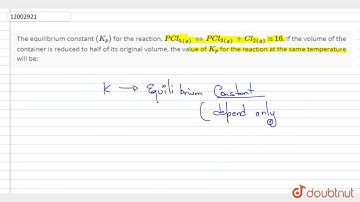 12002921
The equilibrium constant (Kp) for the reaction, PCl5(g) ⇔ PCl3(g) + Cl2(g) is 16. If the volume of the
container is reduced to half of its original volume, the value of Kp for the reaction at the same temperature
will be:
K → Equilibrium Constant
(depend only
doubtnut